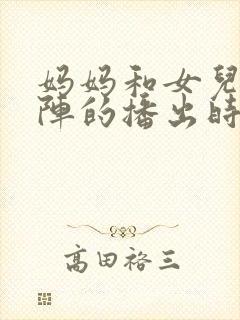 妈妈和女兒
陣的播出時
高田裕三